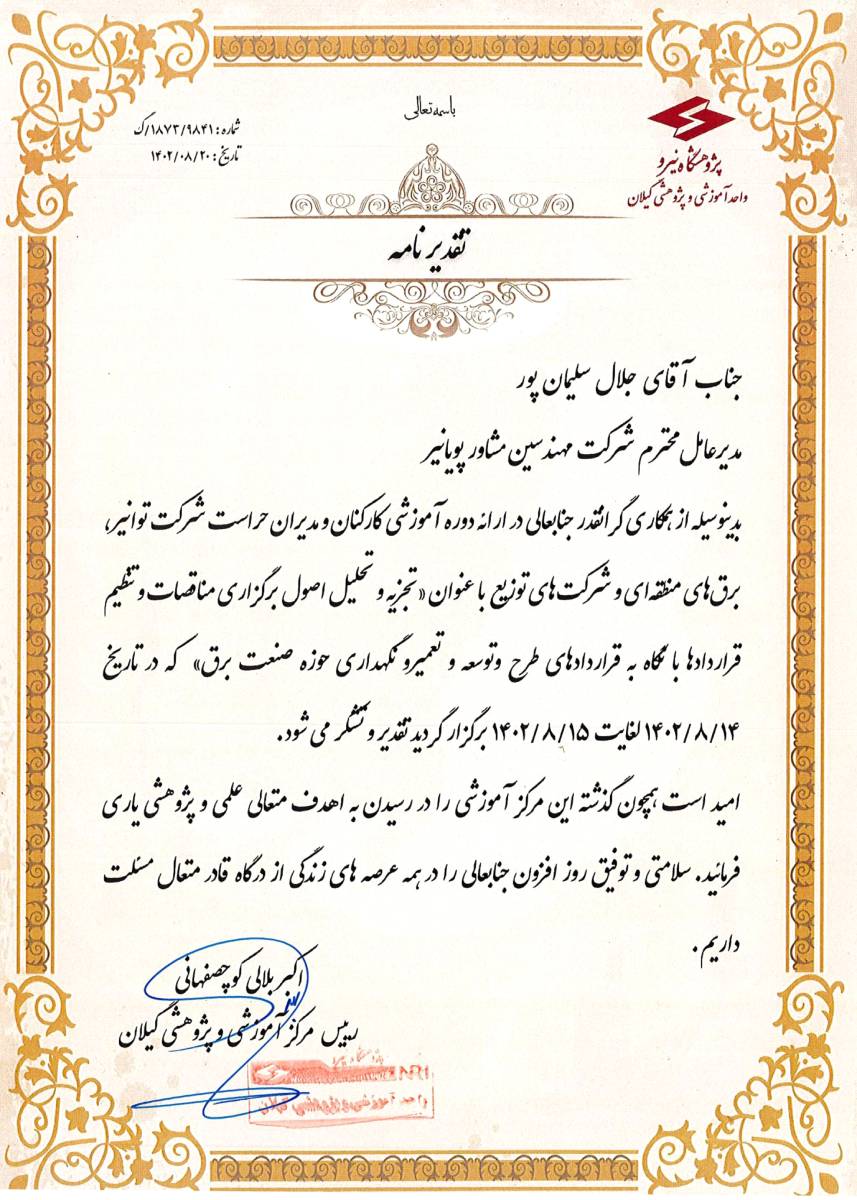 باسمه تعالی
پژوهشگاه نیرو
واحد آموزشی و پژوهشی گیلان
شماره: ۱۸۷۳/۹۸۴۱/گ
تاریخ: ۱۴۰۲/۰۸/۲۰
تقدیر نامه
جناب آقای جلال سلیمان پور
مدیرعامل محترم شرکت مهندسین مشاور پویانیر
بدینوسیله از همکاری گرانقدر جنابعالی در ارائه دوره آموزشی کارکنان و مدیران حراست شرکت توانیر،
برق های منطقه ای و شرکت های توزیع با عنوان «تجزیه و تحلیل اصول برگزاری مناقصات و تنظیم
قراردادها با نگاه به قراردادهای طرح وتوسعه و تعمیرو نگهداری حوزه صنعت برق» که در تاریخ
۱۴۰۲/۸/۱۴ لغایت ۱۴۰۲/۸/۱۵ برگزار گردید تقدیر و تشکر می شود.
امید است همچون گذشته این مرکز آموزشی را در رسیدن به اهدف متعالی علمی و پژوهشی یاری
فرمائید. سلامتی و توفیق روز افزون جنابعالی را در همه عرصه های زندگی از درگاه قادر متعال مسئلت
داریم.
اکبر بلالی کوچصفهانی
رییس مرکز آموزشی و پژوهشی گیلان
پژوهشگاه نیرو
NRI
واحد آموزشی و پژوهشی گیلان